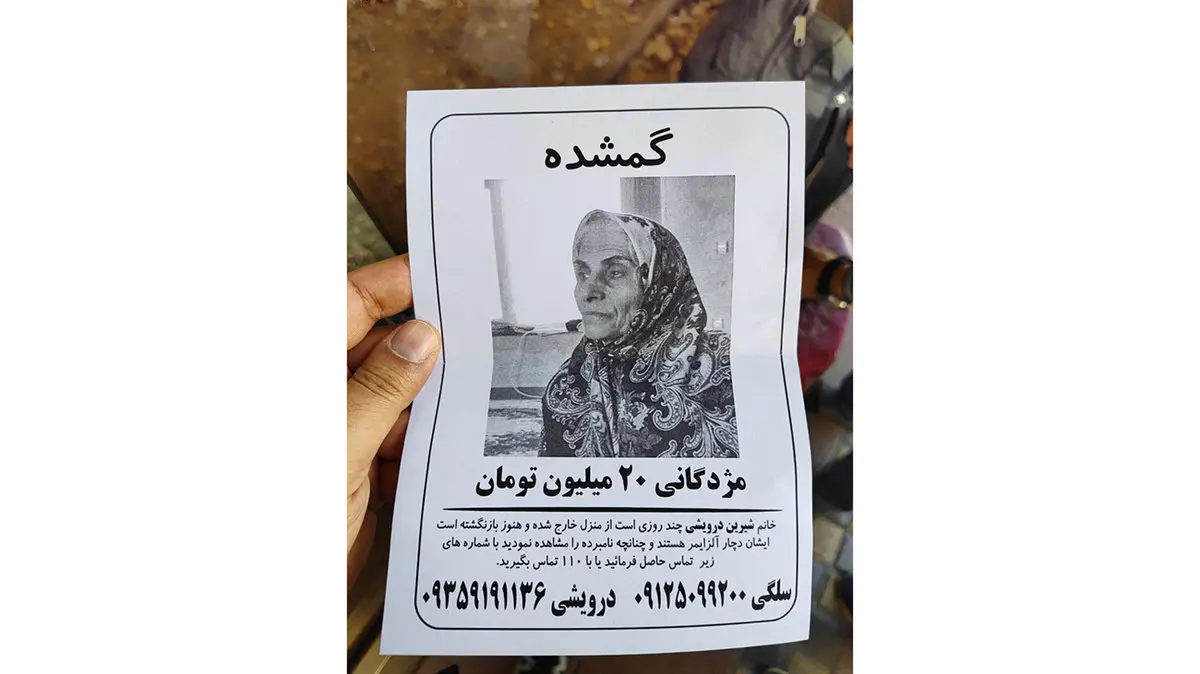 گمشده
مژدگانی ۲۰ میلیون تومان
خانم شیرین درویشی چند روزی است از منزل خارج شده و هنوز بازنگشته است
ایشان دچار آلزایمر هستند و چنانچه نامبرده را مشاهده نمودید با شماره های
زیر تماس حاصل فرمائید یا با ۱۱۰ تماس بگیرید.
سلگی ۰۹۱۲۵۰۹۹۲۰۰ درویشی ۰۹۳۵۹۱۹۱۱۳۶